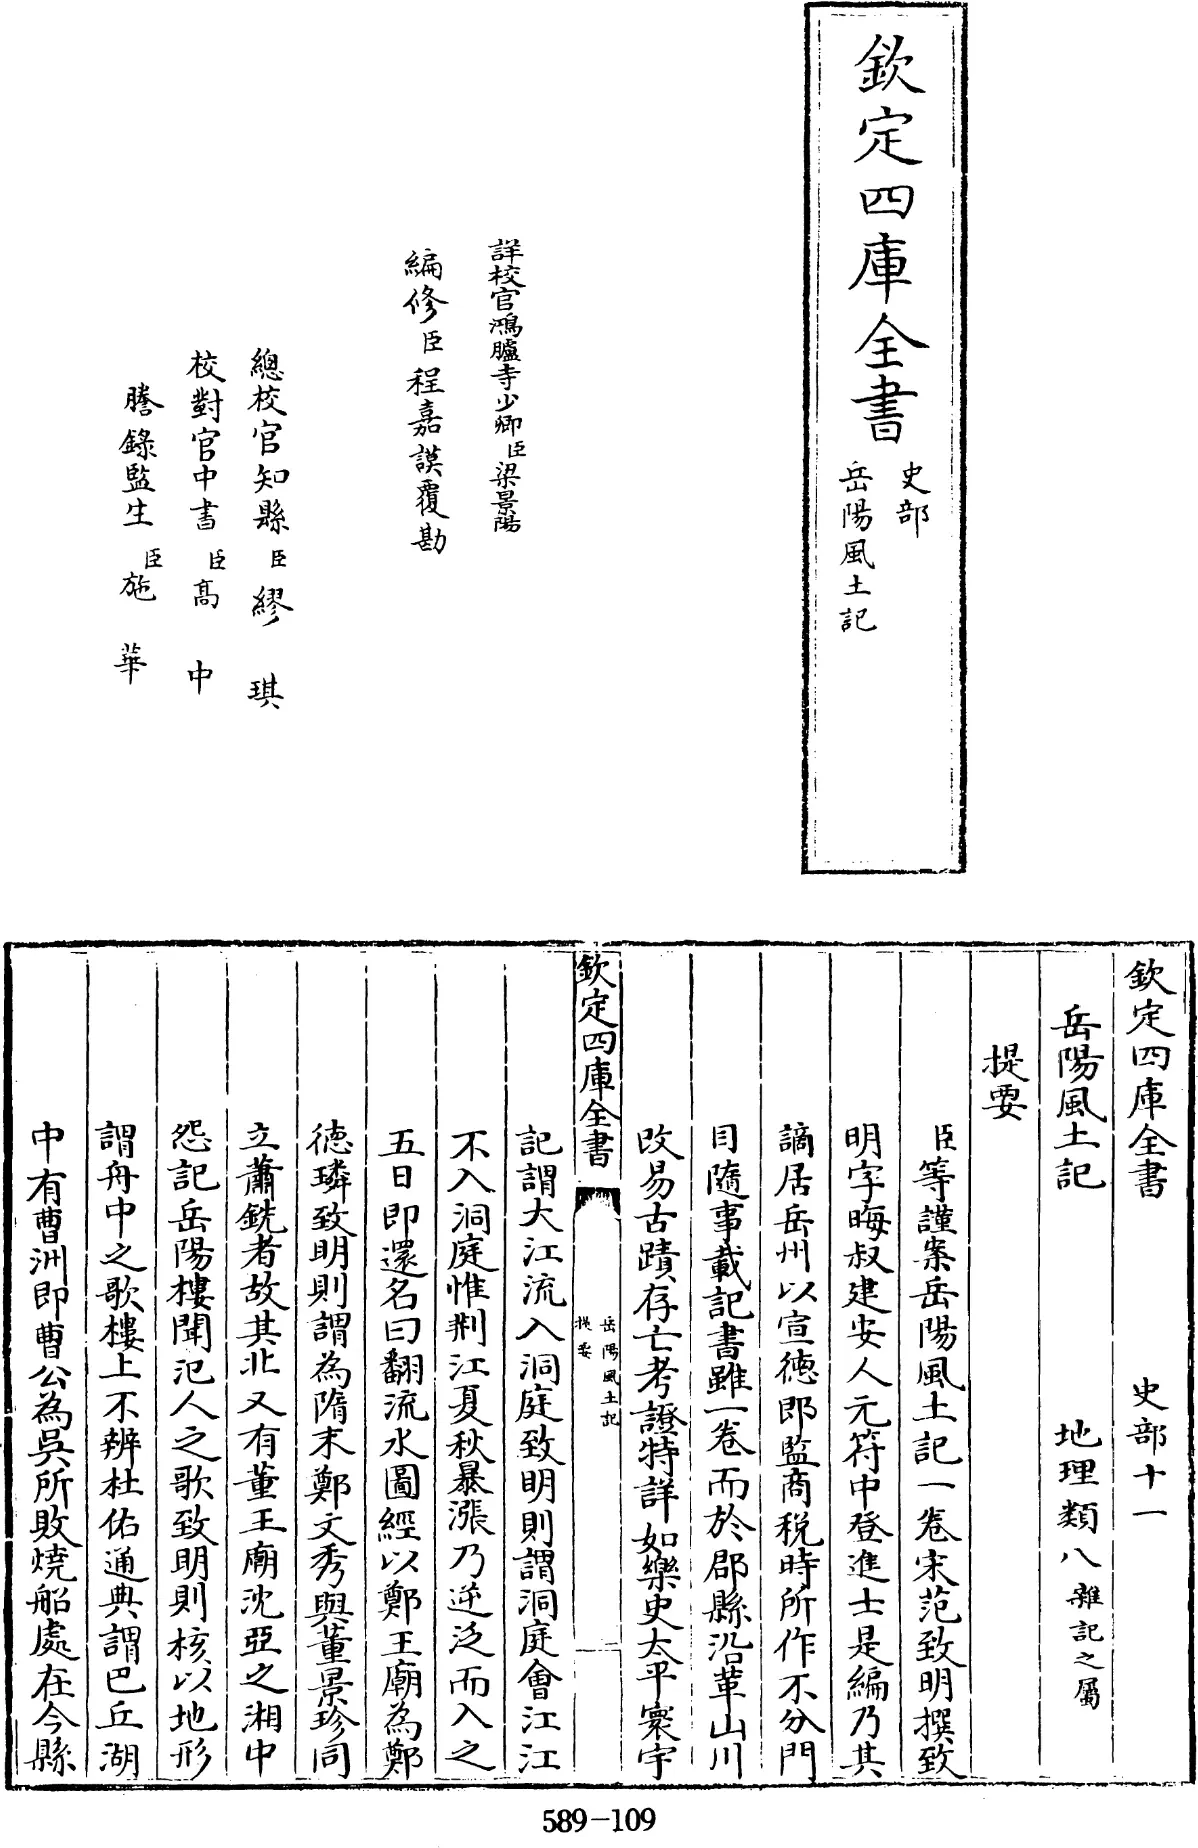 欽定四庫全書
史部
岳陽風土記
詳校官鴻臚寺少卿臣梁景陽
編修臣程嘉謨覆勘
總校官知縣臣繆琪
校對官中書臣高中
謄錄監生臣施華
欽定四庫全書 史部十一
岳陽風土記 地理類八雜記之屬
提要
臣等謹案岳陽風土記一卷宋范致明撰致
明字晦叔建安人元符中登進士是編乃其
謫居岳州以宣德郎監商稅時所作不分門
目隨事載記書雖一卷而於郡縣沿革山川
改易古蹟存亡考證特詳如樂史太平寰宇
欽定四庫全書
岳陽風土記
提要
一
記謂大江流入洞庭致明則謂洞庭會江江
不入洞庭惟荆江夏秋暴漲乃逆泛而入之
五日即還名曰翻流水圖經以鄭王廟為鄭
德璘致明則謂為隋末鄭文秀與董景珍同
立蕭銑者故其北又有董王廟沈亞之湘中
怨記岳陽樓聞氾人之歌致明則核以地形
謂舟中之歌樓上不辨杜佑通典謂巴丘湖
中有曹洲即曹公為吳所敗燒船處在今縣
589-109